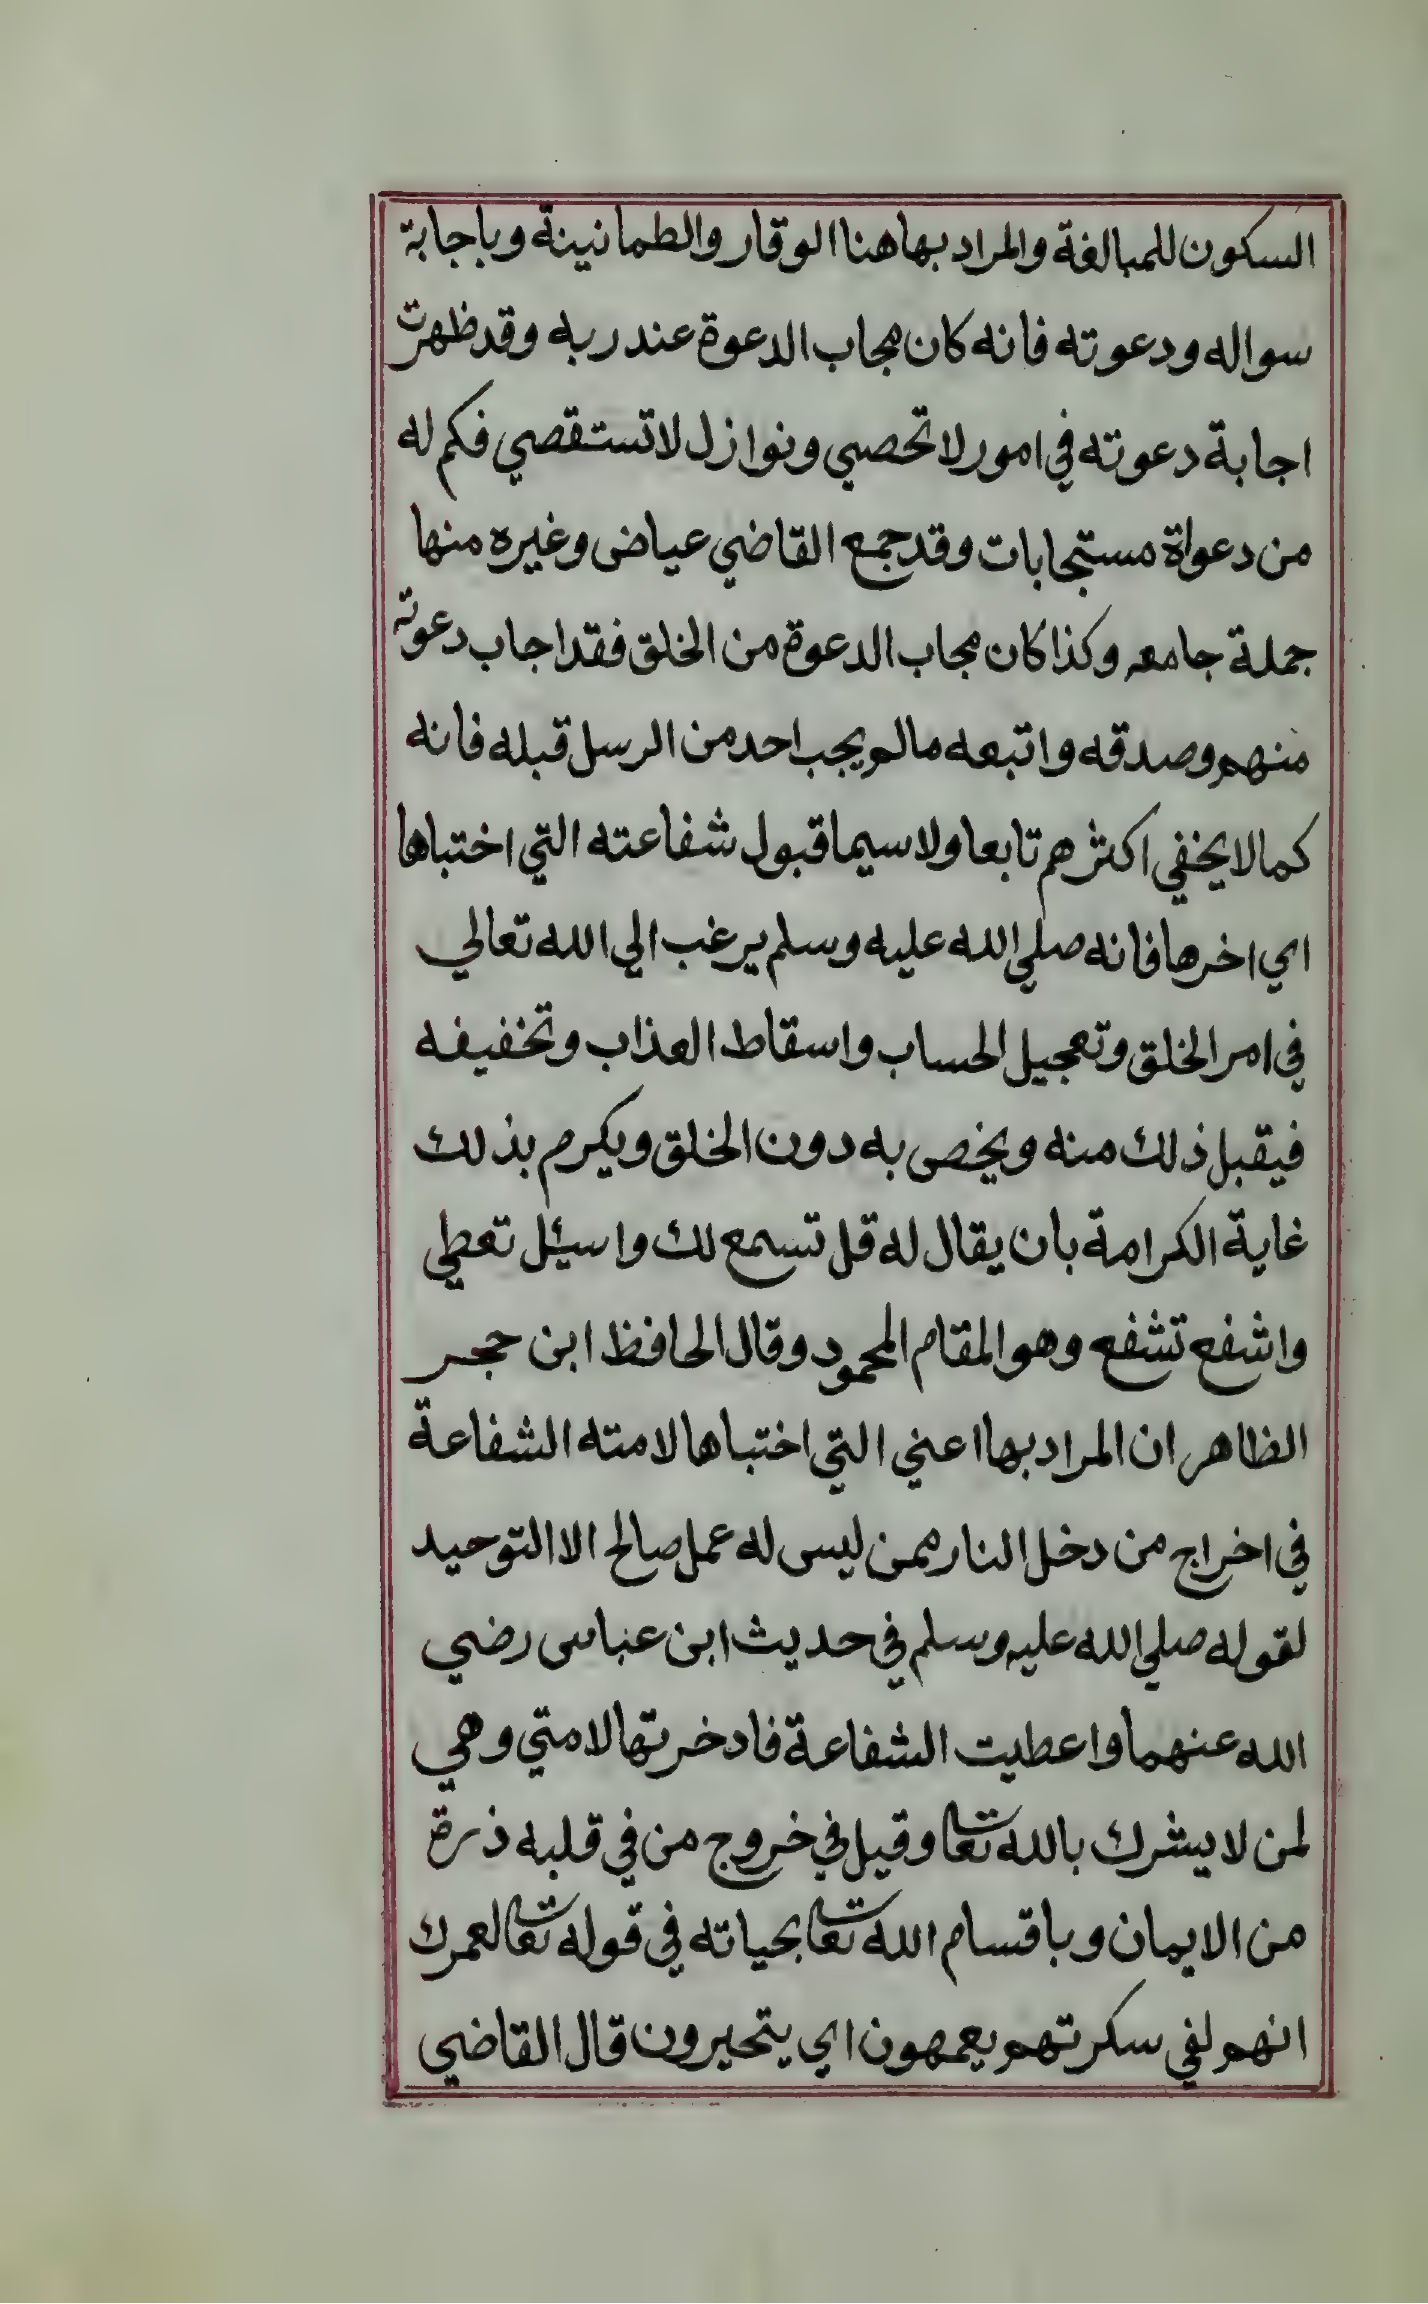 السكون للمبالغة والمراد بها هنا الوقار والطمانينة وباجابة
سواله ودعوته فانه كان مجاب الدعوة عند ربه وقد ظهرت
اجابة دعوته في امور لا تحصي ونوازل لا تستقصي فكم له
من دعواة مستجابات وقد جمع القاضي عياض وغيره منها
جملة جامعه وكذا كان مجاب الدعوة من الخلق فقد اجاب دعوته
منهم وصدقه واتبعه مالم يجب احد من الرسل قبله فانه
كما لا يخفي اكثرهم تابعا ولا سيما قبول شفاعته التي اختباها
اي اخرها فانه صلي الله عليه وسلم يرغب الي الله تعالي
في امر الخلق وتعجيل الحساب واسقاط العذاب وتخفيفه
فيقبل ذلك منه ويخص به دون الخلق ويكرم بذلك
غاية الكرامة بان يقال له قل تسمع لك واسئل تعطي
واشفع تشفع وهو المقام المحمود وقال الحافظ ابن حجر
الظاهر ان المراد بها اعني التي اختباها لامته الشفاعة
في اخراج من دخل النار ممن ليس له عمل صالح الا التوحيد
لقوله صلي الله عليه وسلم في حديث ابن عباس رضي
الله عنهما واعطيت الشفاعة فادخرتها لامتي وهي
لمن لا يشرك بالله تعا وقيل في خروج من في قلبه ذرة
من الايمان وباقسام الله تعا بحياته في قوله تعا لعمرك
انهم لفي سكرتهم يعمهون اي يتحيرون قال القاضي